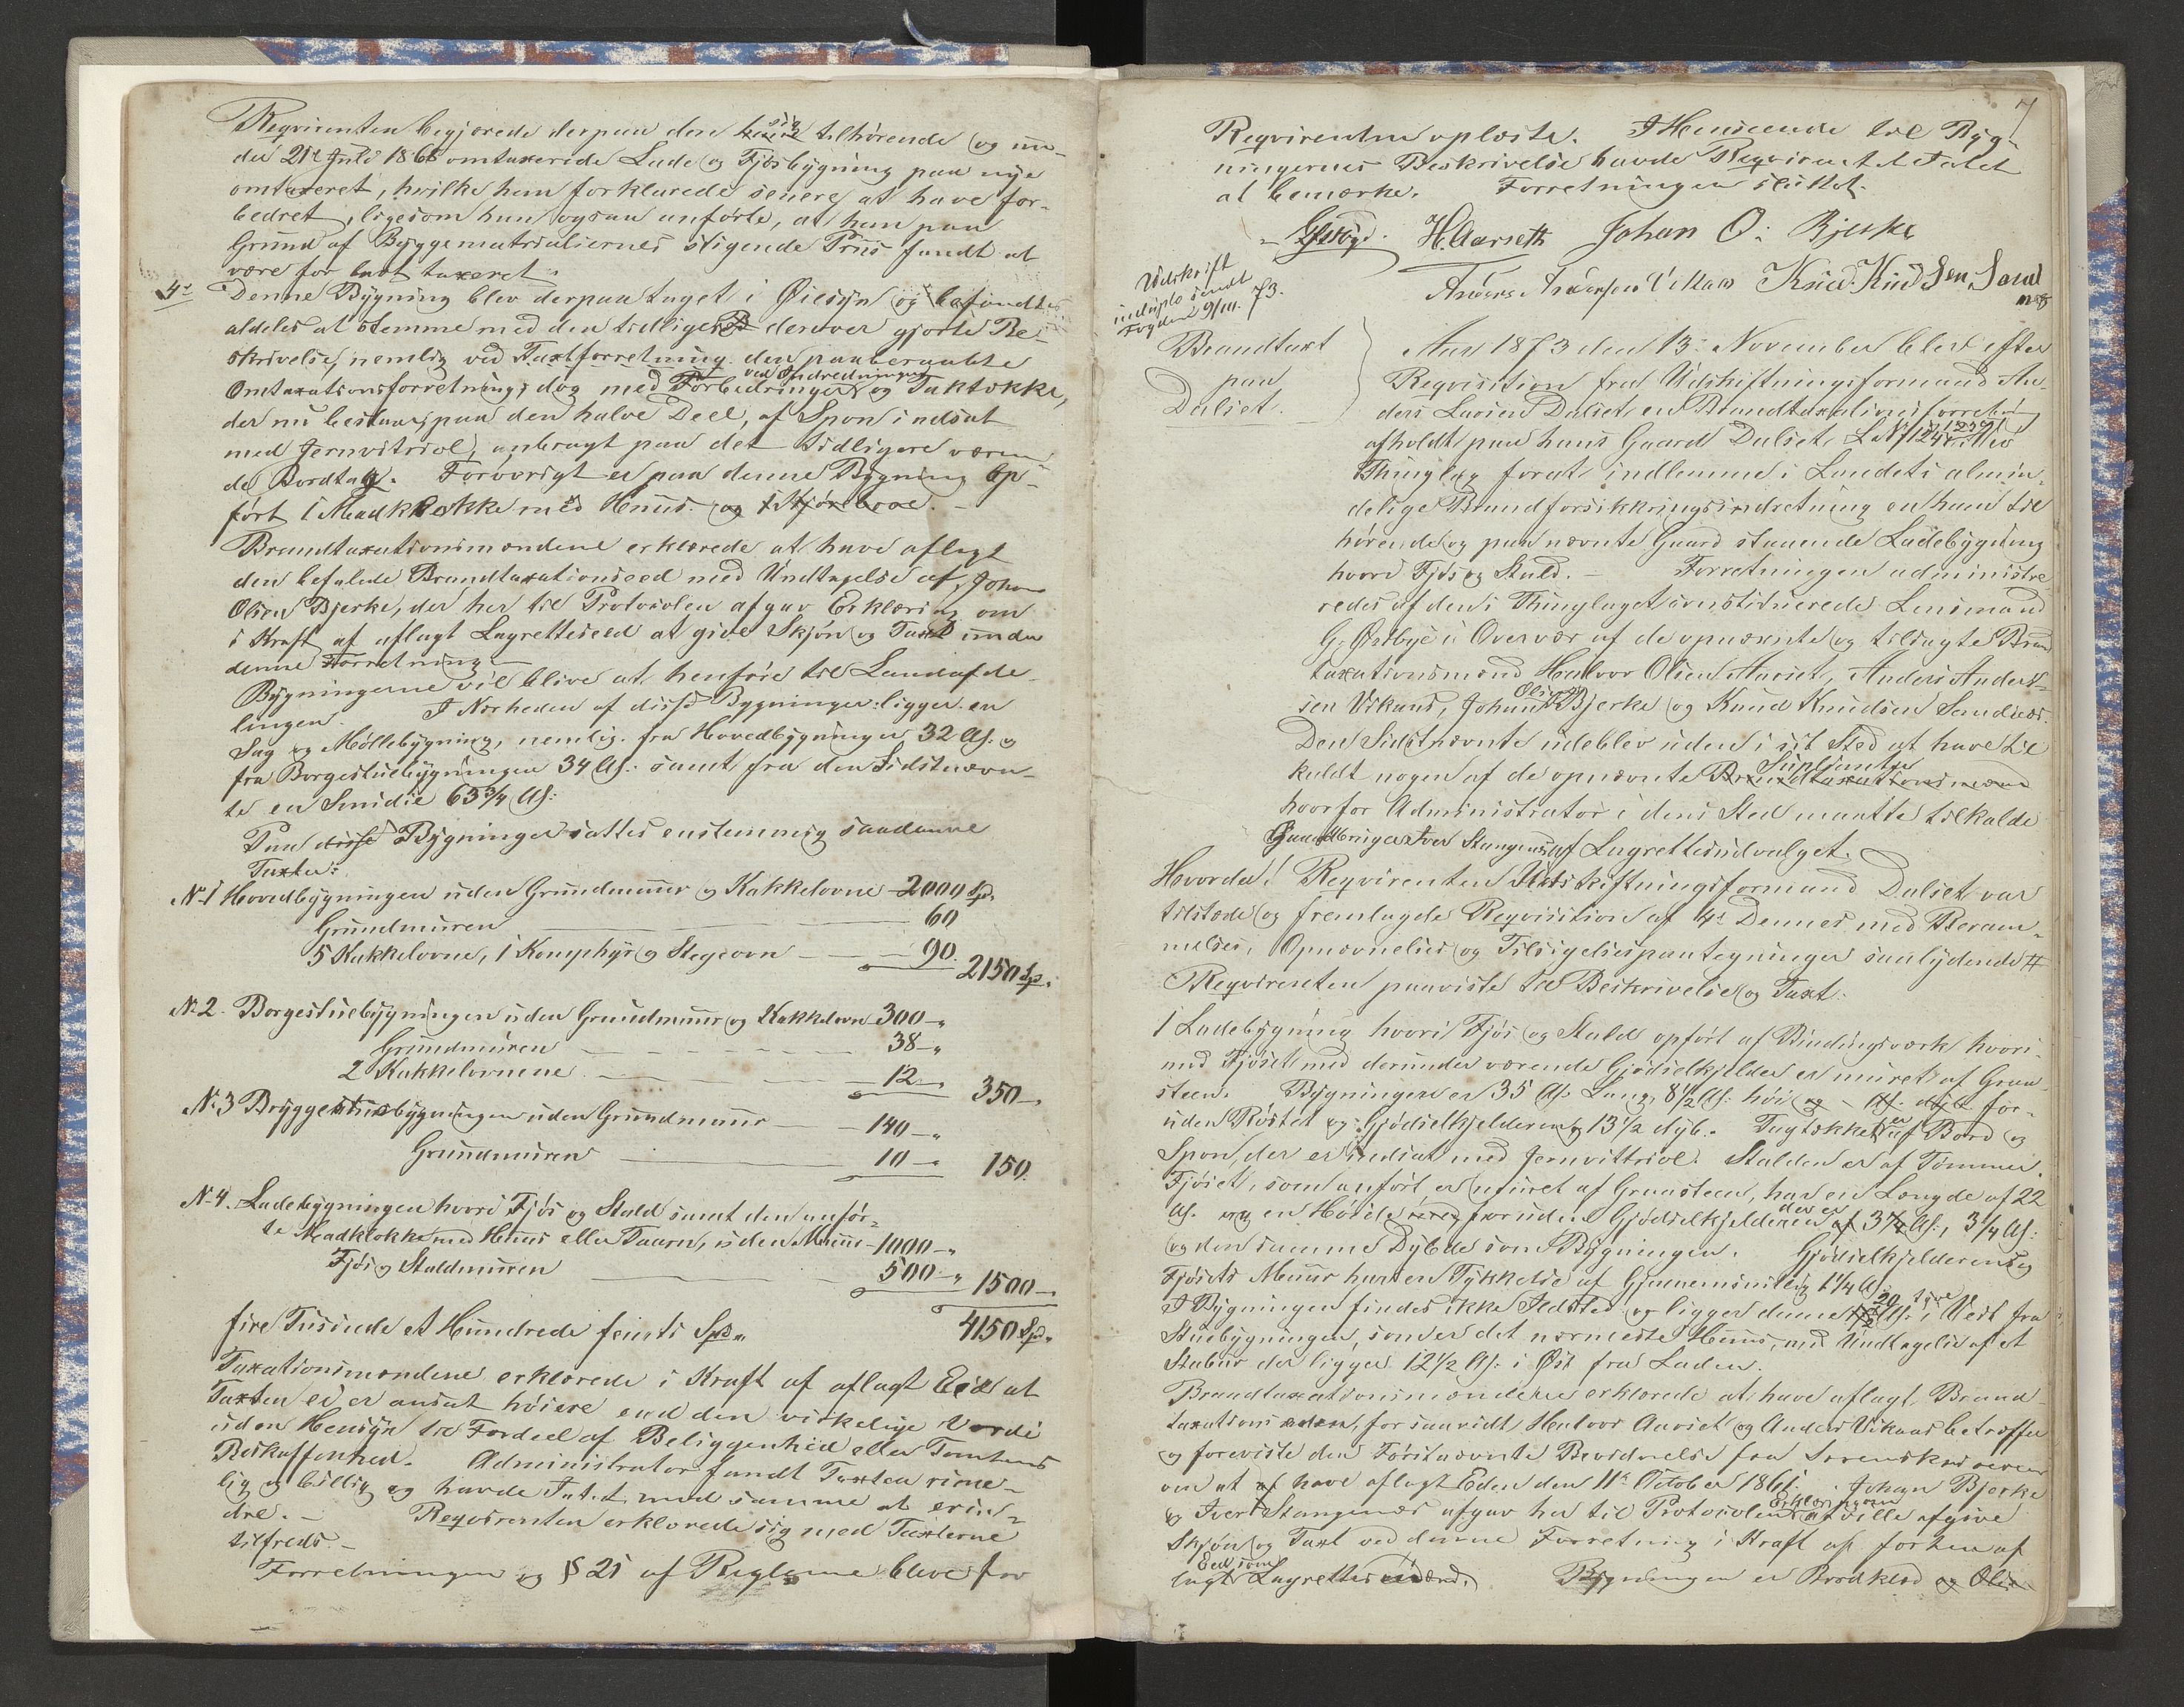 Reqvirenten begjærede derpaa den sig tilhørende og un-
der 21de Juli 1868 omtaxerede Lade og Fjøsbygning paa nye
omtaxeret, hvilke han forklarede senere at have for-
bedret, ligesom han ogsaa anførte, at han paa
Grund af Byggematrialiernes stigende Priis fandt at
være for lavt taxeret.
4de Denne Bygning blev derpaa taget i Øiesyn og befandtes
aldeles at stemme med den tidligere derover gjorte Be-
skrivelse, nemlig ved Taxtforretning den paaberaabte
ved Indredninger
Omtaxationsforretning, dog med Forbedringer og Taktække,
der nu bestaar, paa den halve Deel, af Spon indsat
med Jernvitriol, anbragt paa det tidligere væren-
de Bordtag. Forøvrigt er paa denne Bygning op-
ført 1 Madklokke med Huus og 1 Kjørebroe.
Brandtaxationsmændene erklærede at have aflagt
den befalede Brandtaxationseed med Undtagelse af Johan
Olsen Bjerke, der her til Protocolen afgav Erklæring om
i Kraft af aflagt Lagretteseed at give Skjøn og Taxt under
denne Forretning.
Bygningerne vil blive at henføre til Landafde-
lingen. I Nærheden af disse Bygninger ligger en
Sag og Møllebygning, nemlig fra Hovedbygningen 32 Al. og
fra Borgestuebygningen 34 Al. samt fra den Sidstnævn-
te en Smidie 63 3/4 Al.
Paa disse Bygninger sattes eenstemmig saadanne
Taxter:
No 1 Hovedbygningen uden Grundmuur og Kakkelovne 2000 Spd.
Grundmuren 60
5 Kakkelovne, 1 Komphyr og Stegeovn 90. 2150 Spd.
No 2. Borgestuebygningen uden Grundmuur og Kakkelovn 300 "
Grundmuren 38 "
2 Kakkelovnene 12 350
No 3 Bryggehuusbygningen uden Grundmuur 140 "
Grundmuren 10 150.
No 4. Ladebygningen hvori Fjøs og Stald samt den anfør-
te Madklokke med Huus eller Taarn, uden Muur 1000 "
Fjøs og Staldmuren 500 " 1500
fire Tusinde et Hundrede femti Spd. 4150 Spd.
Taxationsmændene erklærede i Kraft af aflagt Eed at
Taxten ei er ansat høiere end den virkelige Værdi
uden Hensyn til Fordeel af Beliggenhed eller Tomtens
Beskaffenhed. Administrator fandt Taxten rime-
lig og billig og havde Intet mod samme at erin-
dre. Reqvirenten erklærede sig med Taxterne
tilfreds.
Forretningen og § 21 af Reglerne blev for
7
Reqvirenten oplæste. I Henseende til Byg-
ningernes Beskrivelse havde Reqvirentet Intet
at bemærke. Forretningen sluttet.
H. Aarseth Johan O: Bjerke
Anders Andersen Vikaas Knud Knudsen Sand
næs
Udskrift
indsendt
Fogden 9/III. 73.
Brandtaxt
paa
Dalset.
Aar 1873 den 13. November blev efter
Reqvisition fra Udskiftningsformand An-
ders Larsen Dalset en Brandtaxationsforretning
afholdt paa hans Gaard Dalset, L.N. 124
Thinglag forat indlemme i Landets almin-
delige Brandforsikkringsindretning en ham til
hørende og paa nævnte Gaard staaende Ladebygning
hvori Fjøs og Stald. Forretningen administre-
redes af den i Thinglaget constituerede Lensmand
G. Østbye i Overvær af de opnævnte og tilsagte Brand
taxationsmænd Halvor Olsen Aarset, Anders Ander-
sen Vikaas, Johan Olsen Bjerke og Knud Knudsen Sandnæs.
Den Sidstnævnte udeblev uden i sit Sted at have til
Supleanter
kaldt nogen af de opnævnte Brandtaxationsmænd
hvorfor Administrator i dens Sted maatte tilkalde
Gaardbruger Iver Stangenæs af Lagrettesudvalget.
Hvorda! Reqvirenten Udskiftningsformand Dalset var
tilstæde og fremlagde Reqvisition af 4de Dennes med Beram-
melses, Opnævnelses og Tilsigelsespaategninger saalydende #
Reqvirenten paaviste til Beskrivelse og Taxt:
1 Ladebygning hvori Fjøs og Stald opført af Bindingsværk hvori-
mod Fjøset med derunder værende Gjødselkjelder er muret af Graa-
steen. Bygningen er 35 Al. Lang, 8 1/2 Al. høi og Al. dyb for-
uden Røstet og Gjødselkjelderen og 13 1/2 dyb. Tagtækket er af Bord og
Spon, der er indsat med Jernvittriol. Stalden er af Tømmer.
Fjøset, som anført er muret af Graasteen, har en Længde af 22
Al. og en Høide foruden Gjødselkjelderen der er af 3 1/4 Al., 3 1/4 Al.
og den samme Dybde som Bygningen. Gjødselkjelderens og
Fjøsets Muur har en Tykkelse af Gjennemsnitlig 1 1/4 Al.
I Bygningen findes ikke Ildsted og ligger denne 20 tyve Al. i Vest fra
Stuebygningen, som er det nærmeste Huus, med Undtagelse af et
Stabur der ligger 12 1/2 Al. i Øst fra Laden.
Brandtaxationsmændene erklærede at have aflagt Brand-
taxations eden, forsaavidt Halvor Aarset og Anders Vikaas betræffer
og foreviste den Førstnævnte Bevidnelse fra Sorenskriveren
om at have aflagt Eden den 11te October 1861. Johan Bjerke
og Iver Stangenæs afgav her til Protocolen Erklæringen at ville afgive
Skjøn og Taxt ved denne Forretning i Kraft af forhen af
lagt Eed som Lagrettesmænd. Bygningen er Bordklæd